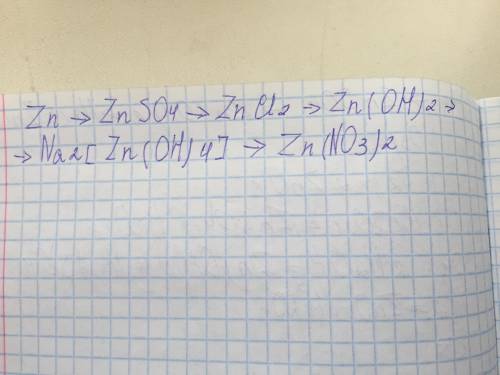 Zn → ZnSO4 → ZnCl2 → Zn(OH)2 →
→ Na2[Zn(OH)4] → Zn(NO3)2